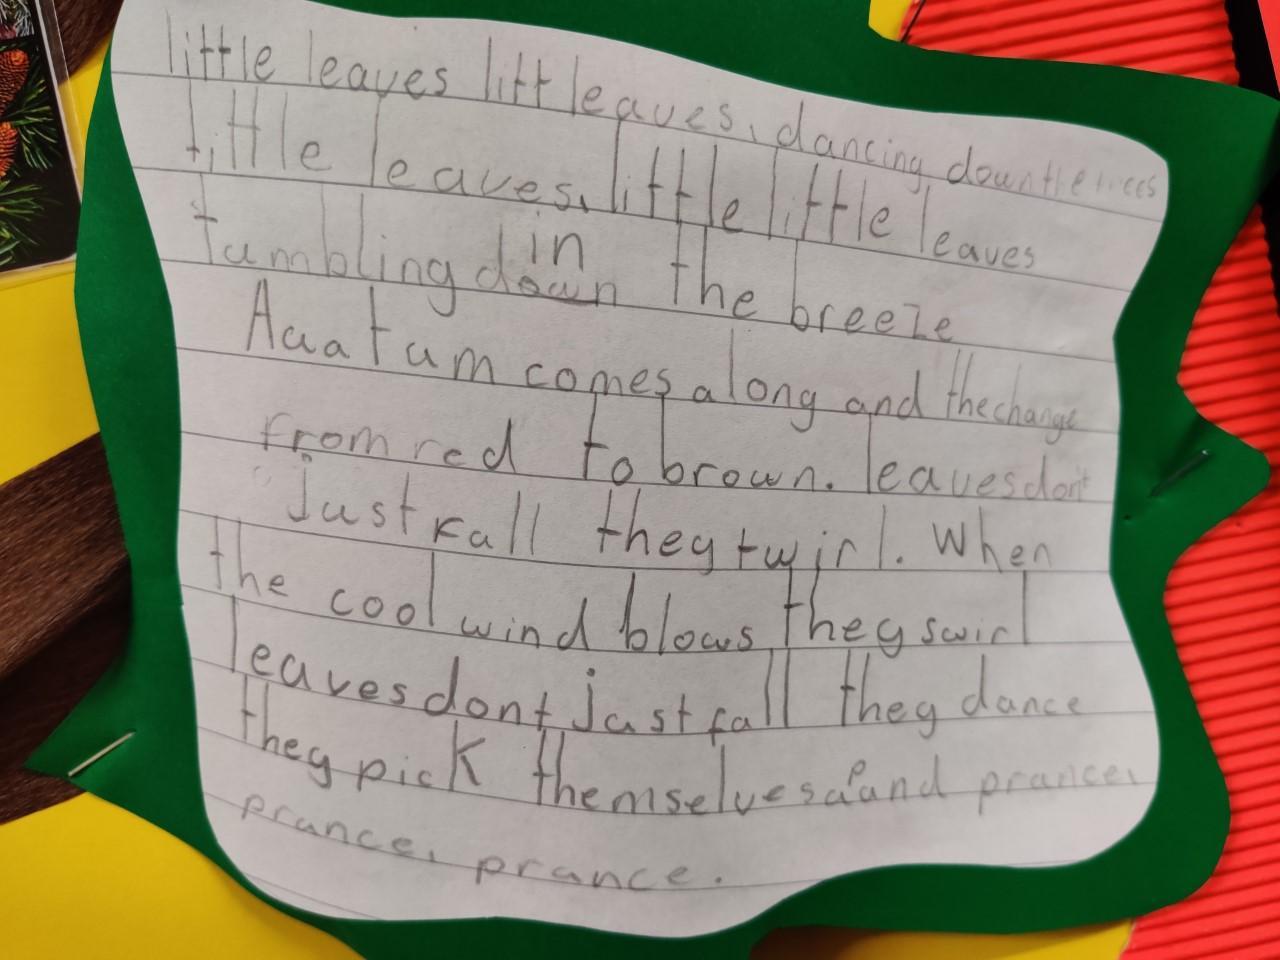 little leaves litt leaves, dancing down the trees
little leaves, little little leaves
tumbling down in the breeze
Auatum comes along and the change
from red to brown. leaves don't
just fall they twirl. When
the cool wind blows they swirl
leaves dont just fall they dance
they pick themselves and prance,
prance, prance.